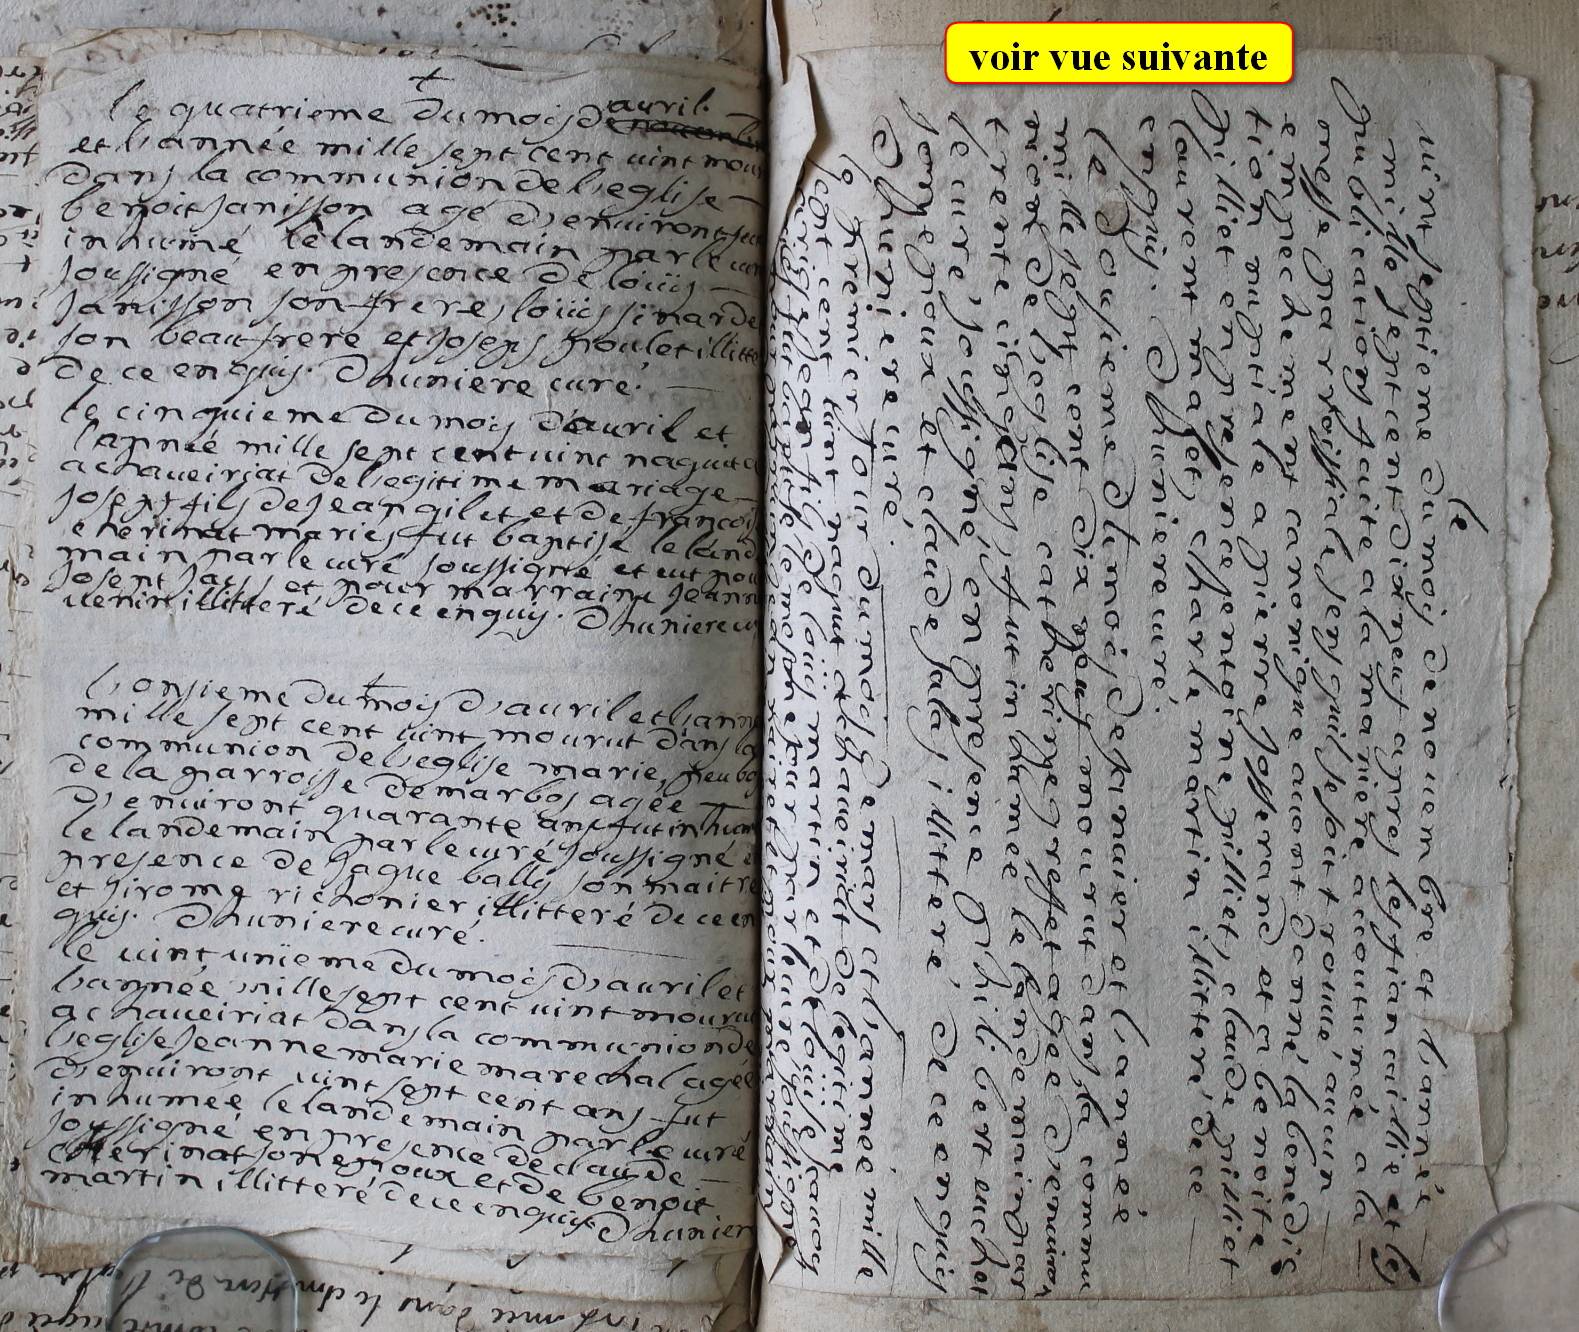 voir vue suivante
le quatrieme du mois de auril
et l'année mille sept cent uint mou
dans la communion de l'eglise
benoit janisson agé d'enuiront
inhumé le landemain par le
soussigné en presence de loüis
janisson son frere, loüis sinarde
son beau frere et joseph poulet illitte
de ce enquis. Dhuniere curé.
le cinquieme du mois d'auril et
l'année mille sept cent uint naquit a
achaueiriat de legitime mariage
joseph fils de jean gilet et de françois
cherinat maries, fut baptisé le land
main par le curé soussigné et eut pou
joseph et pour marraine jeann
illitteré de ce enquis. Dhuniere cu
l'onsieme du mois d'auril et l'ann
mille sept cent uint mourut dans la
communion de l'eglise marie
de la parroisse de marbos agée
d'enuiront quarante ans fut inhum
le landemain par le curé soussigné e
presence de jaque bally son maitre
et jirome richonier illitteré de ce en
quis. Dhuniere curé.
le uint unieme du mois d'auril et
l'année mille sept cent uint mouru
achaueiriat dans la communion de
l'eglise jeanne marie marechal agée
d'enuiront uint sept cent ans fut
inhumée le landemain par le curé
soussigné en presence de claude
cherinat son epoux et de benoit
martin illitteré de ce enquis Dhunier
le
uint septieme du mois de nouenbre et l'année
mille sept cent dix neuf apres les fiancaillie et les
publications faite a la maniere accoutumée a la
messe parroissiale sens quil se soit trouué aucun
empechement canonique auont donné la benedis
tion nuptiale a pierre josserand et a benoite
pilliet en presence d'entoine pilliet, claude pilliet
laurent majet, charle martin illitteré de ce
enquis. Dhuniere curé.
le dousieme du mois de januier et l'année
mille sept cent dix neuf mourut dans la commu
nion de l'eglise catherine presset agée d'enuiron
trente cinq ans, fut inhumée le landemain par
le curé soussigné, en presence philibert euchet
son epoux et claude salas illitteré de ce enquis
Dhuniere curé.
le premier jour du mois de mars et l'année mille
sept cent uint naquit achaueiriat de legitime
mariage jean fils de louis martin et de louise jaucoy
maries, fut baptisé le mesme jour par le curé soussigné